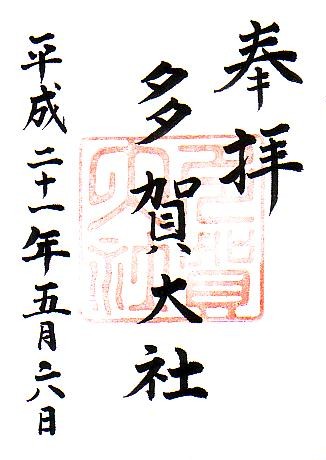 奉拝
多賀大社
平成二十一年五月六日
多賀
大社